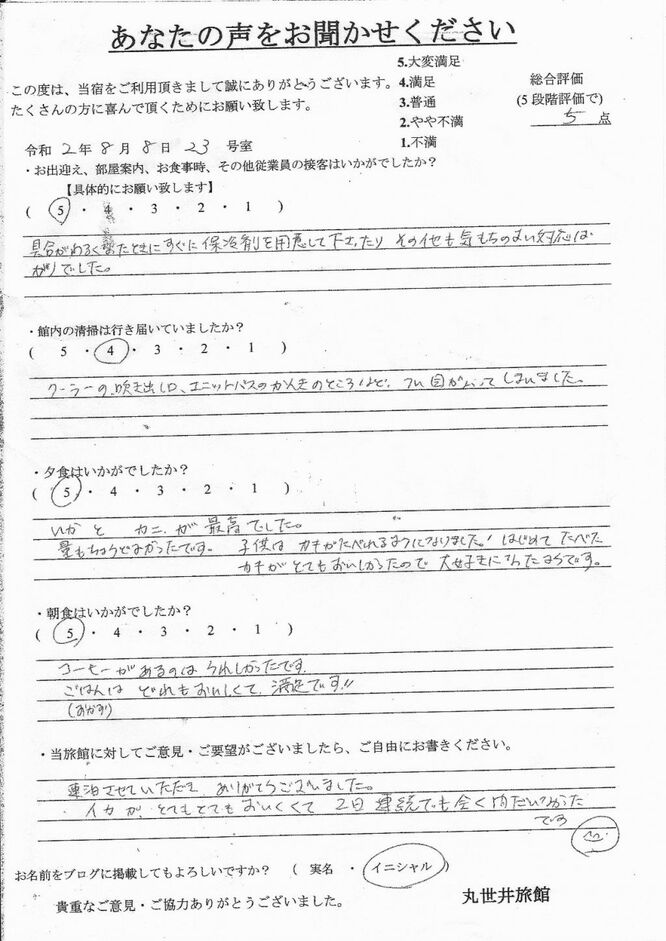 あなたの声をお聞かせください
この度は、当宿をご利用頂きまして誠にありがとうございます。
たくさんの方に喜んで頂くためにお願い致します。
5.大変満足
4.満足
3.普通
2.やや不満
1.不満
総合評価
(5段階評価で)
5 点
令和 2年 8月 8日 23 号室
・お出迎え、部屋案内、お食事時、その他従業員の接客はいかがでしたか?
【具体的にお願い致します】
( 5 ・ 4 ・ 3 ・ 2 ・ 1 )
具合がわるくなったときにすぐに保冷剤を用意して下さったり その他も気もちのよい対応ば
かりでした。
・館内の清掃は行き届いていましたか?
( 5 ・ 4 ・ 3 ・ 2 ・ 1 )
クーラーの吹き出し口、ユニットバスのかんきのところなど、つい目がいってしまいました。
・夕食はいかがでしたか?
( 5 ・ 4 ・ 3 ・ 2 ・ 1 )
いかと カニ が 最高でした。
量もちょうどよかったです。 子供は カキがたべれるようになりました! はじめて たべた
カキが とてもおいしかったので 大好きになったようです。
・朝食はいかがでしたか?
( 5 ・ 4 ・ 3 ・ 2 ・ 1 )
コーヒーがあるのは うれしかったです。
ごはんは どれもおいしくて 満足です!!
(おかず)
・当旅館に対してご意見・ご要望がございましたら、ご自由にお書きください。
連泊させていただき ありがとうございました。
イカが、とてもとても おいしくて 2日 連続でも全く
です
お名前をブログに掲載してもよろしいですか? ( 実名 ・ イニシャル )
貴重なご意見・ご協力ありがとうございました。
丸世井旅館